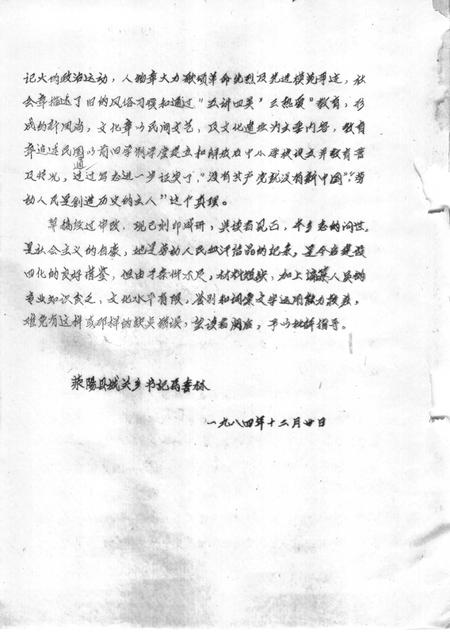 记大的政治运动，人物章大力歌颂革命先烈及先进模范事迹，社
会章描述了旧的风俗习惯和通过“五讲四美”三热爱”教育，形
成的新风尚，文化章以民间文艺，及文化遗址为主要内容，教育
章追述民国以前旧学制学度建立和解放后中小学校设立并教育普
及情况，通过写志进一步证实了“没有共产党就没有新中国”，“劳
动人民是创造历史的主人”这个真理。
草稿经过审改，现已刻印成册，与读者见面，本乡志的问世，
是社会主义的自豪，她是劳动人民血汗结晶的记录，是今后建设
四化的良好借鉴，但由于条件不足，材料短缺，加上编纂人员的
专业知识贫乏，文化水平有限，鉴别和词汇文学运用能力较差，
难免有这样或那样的缺点错误，望读者阅后，予以批评指导。
荥阳县城关乡书记
一九八四年十二月廿日